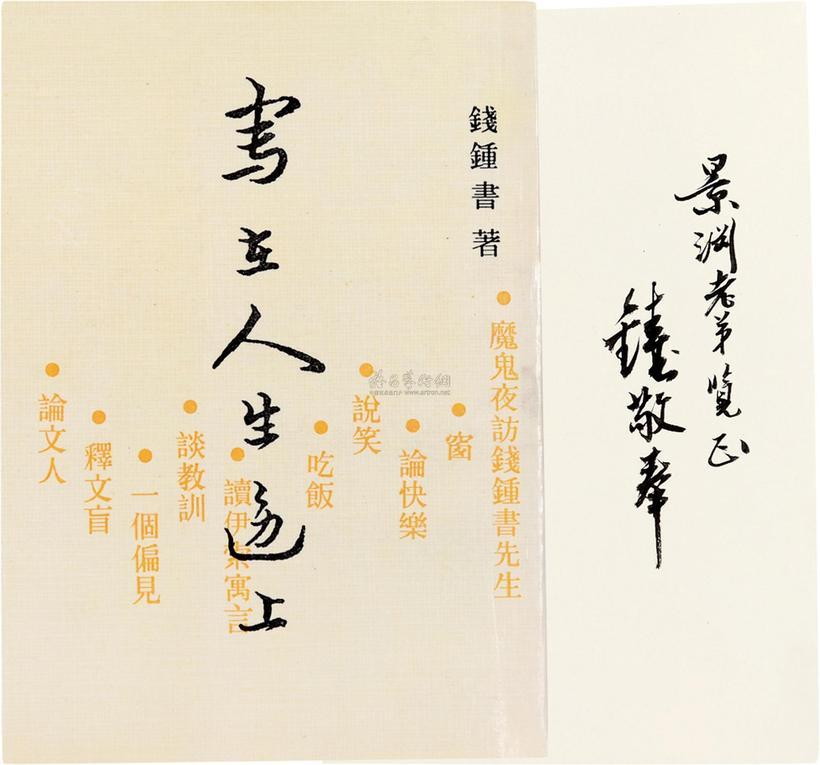 景渊老弟览正
鍾敬奉
錢鍾書 著
●魔鬼夜訪錢鍾書先生
●窗
●論快樂
●說笑
●吃飯
●讀伊索寓言
●談教訓
●一個偏見
●釋文盲
●論文人
写在人生边上
雅昌藝術網
www.artron.net